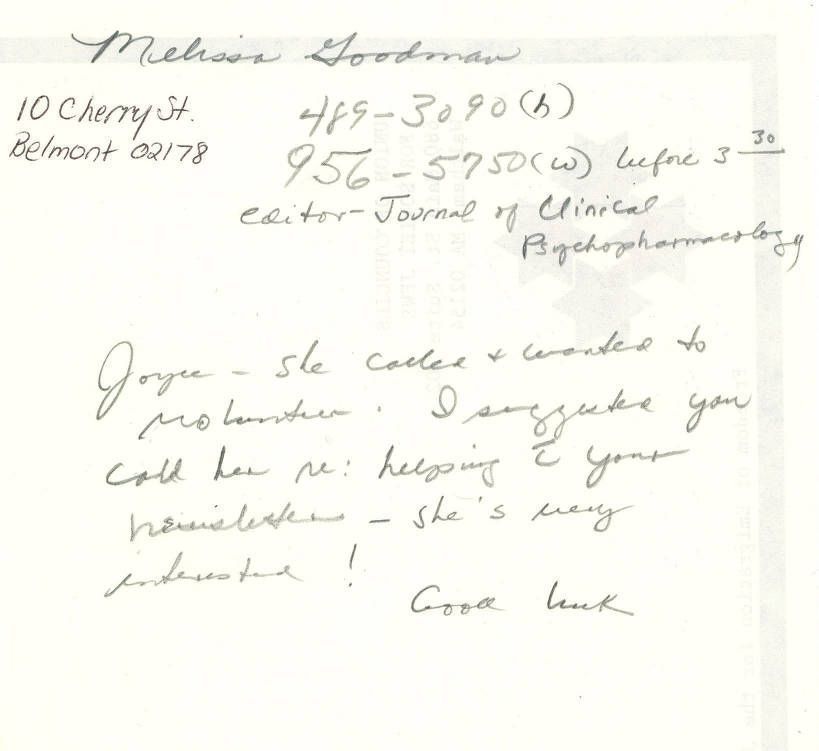 Melissa Goodman
10 Cherry St.
Belmont 02178
489-3090 (h)
956-5750 (w) before 3 30
editor - Journal of Clinical
Psychopharmacology
Joyce - She called + wanted to
volunteer. I suggested you
call her re: helping c̄ your
newsletter - she's very
interested!
Good luck